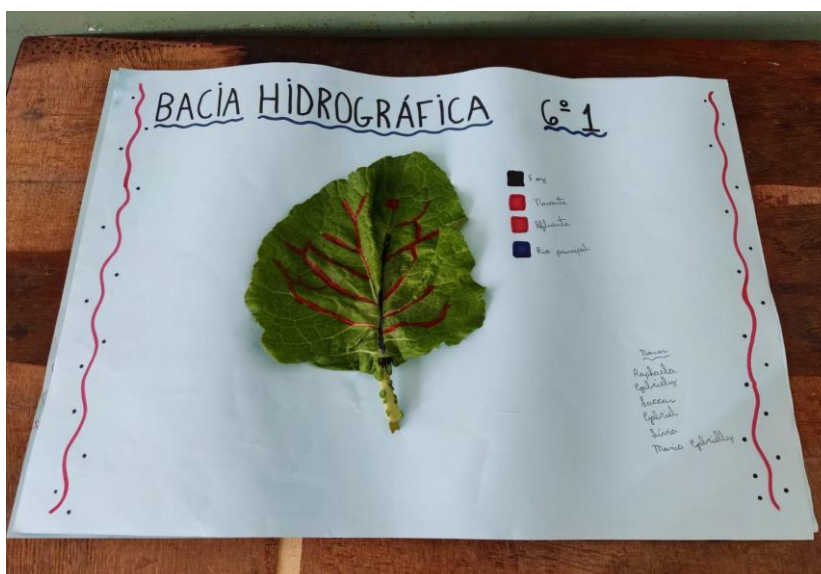 BACIA HIDROGRÁFICA 6º 1
Foz
Nascente
Afluente
Rio principal
Nomes
Raphaela
Gabrielly
Luccas
Gabriel
Lívia
Maria Gabrielly